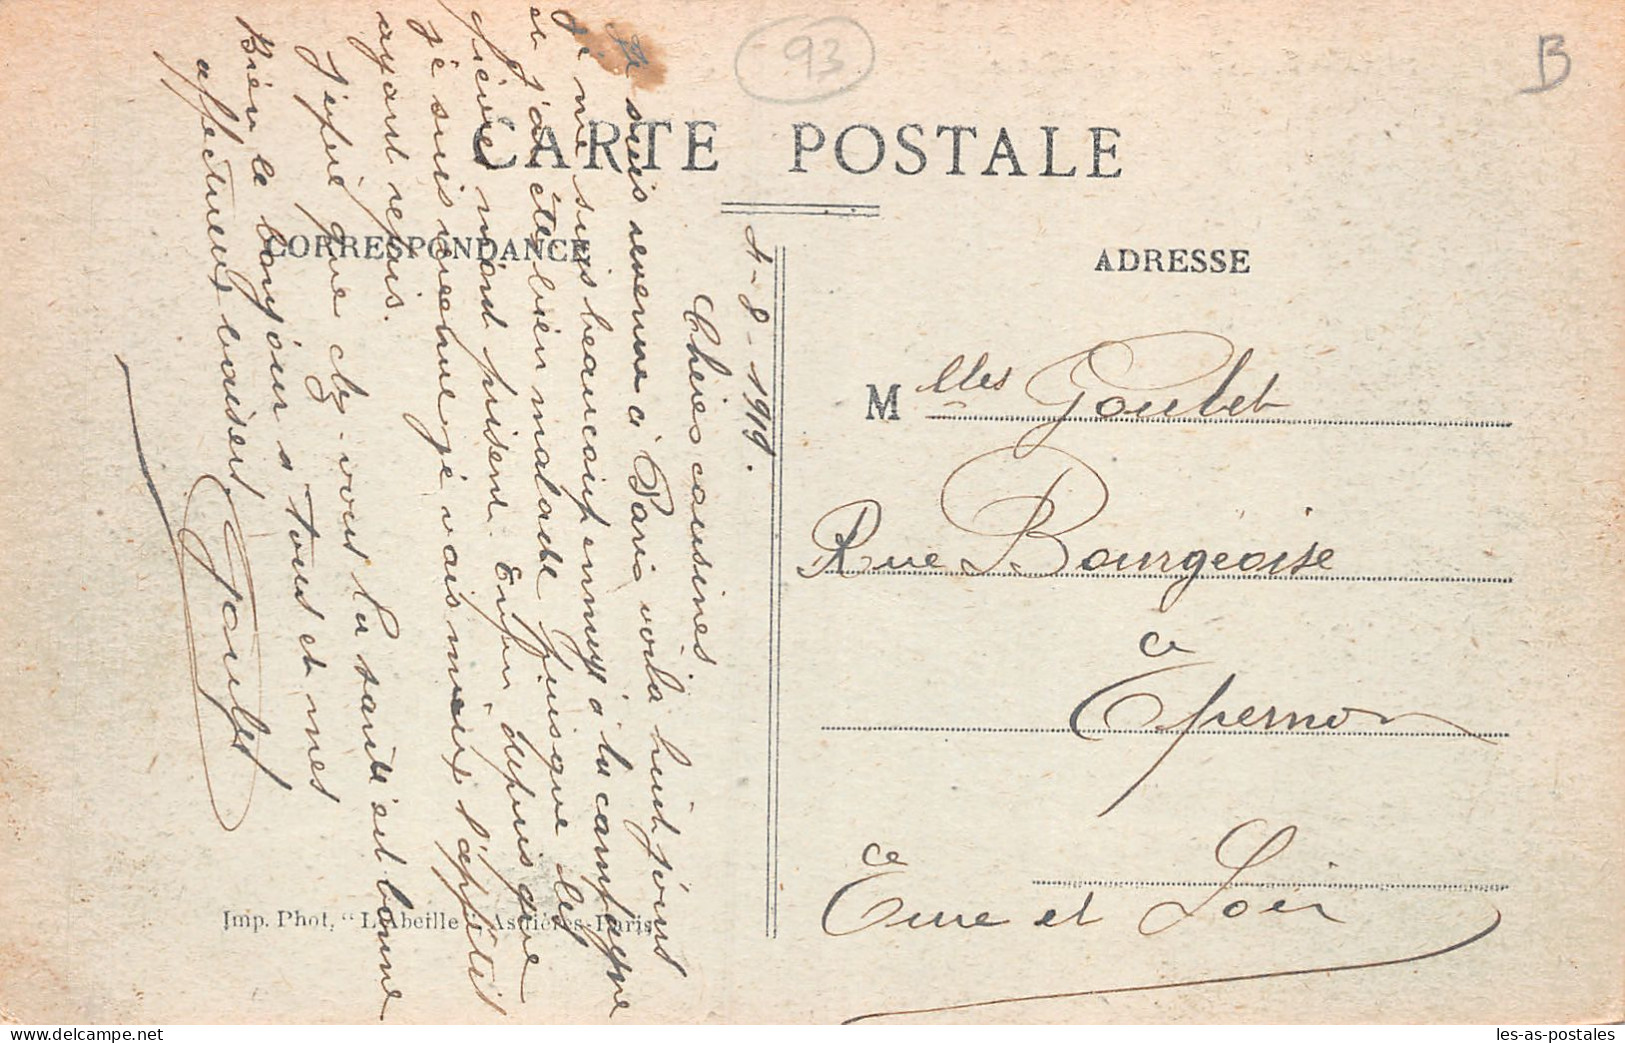 93
B
CARTE POSTALE
CORRESPONDANCE
ADRESSE
4-8-1919.
Chères cousines
Je suis revenue à Paris voila huit jours
je me suis beaucoup ennuyé à la campagne
et j'ai été bien malade puisque les
fièvres m'ont prisent. Enfin depuis que
je suis revenue je vais mieux l'appétit
ayant repris.
J'espère que chez-vous la santé est bonne
Bien le bonjour a tous et mes
affectueux baisers
M elles Goulet
Rue Bourgeoise
a
Epernon
Eure et Loir
Imp. Phot, "L'Abeille", Asnières-Paris
les-as-postales